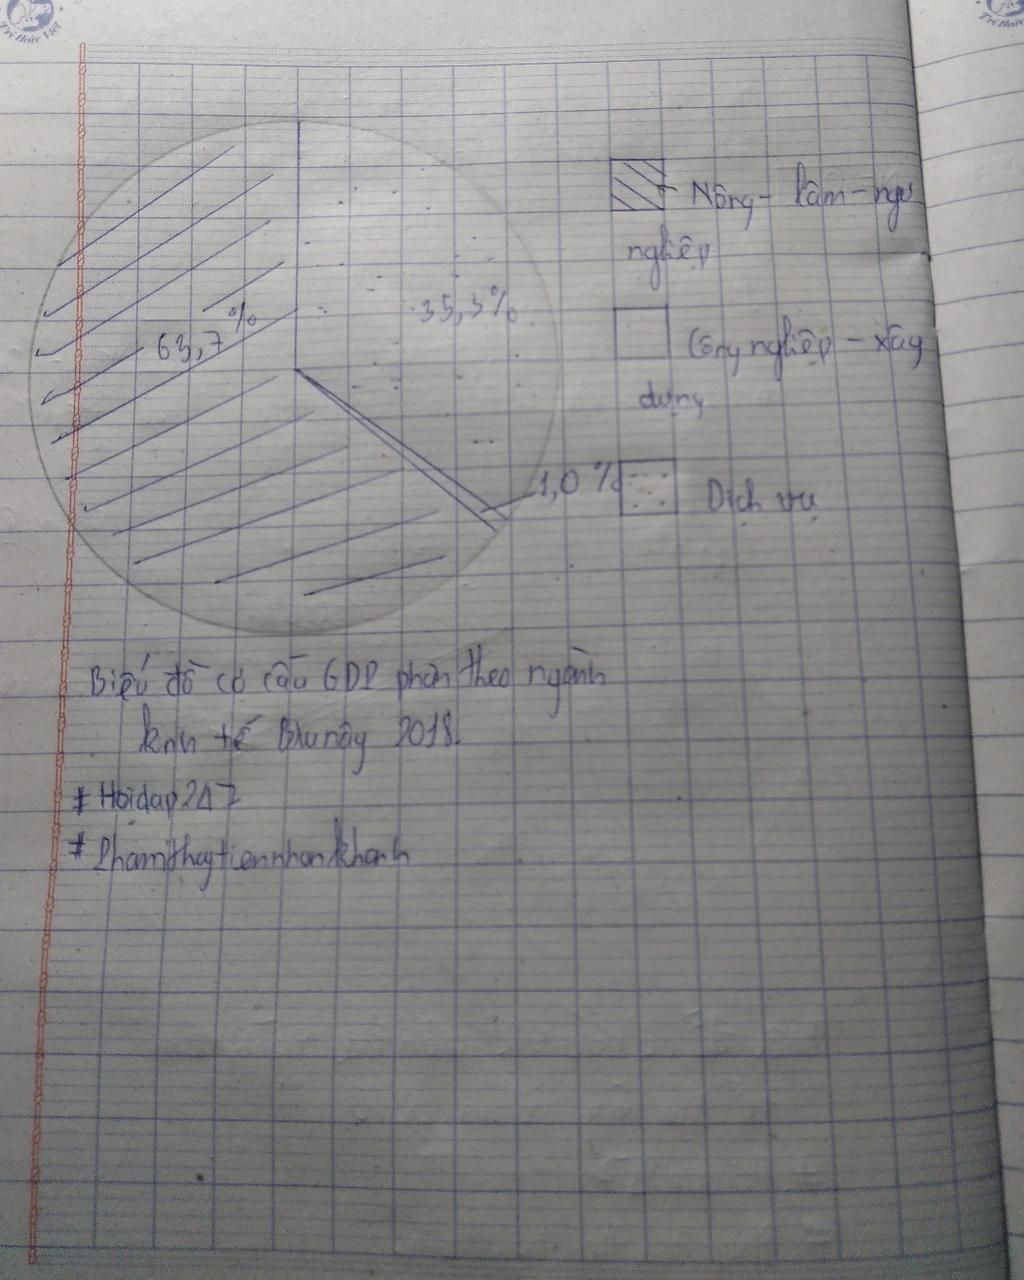 Trí thức Việt
Nông - lâm - ngư
nghiệp
35,3%
63,7%
Công nghiệp - xây
dựng
1,0%
Dịch vụ
Biểu đồ cơ cấu GDP phân theo ngành
kinh tế Brunây 2018.
# Hoidap247
# Phamthuytiennhankhanh